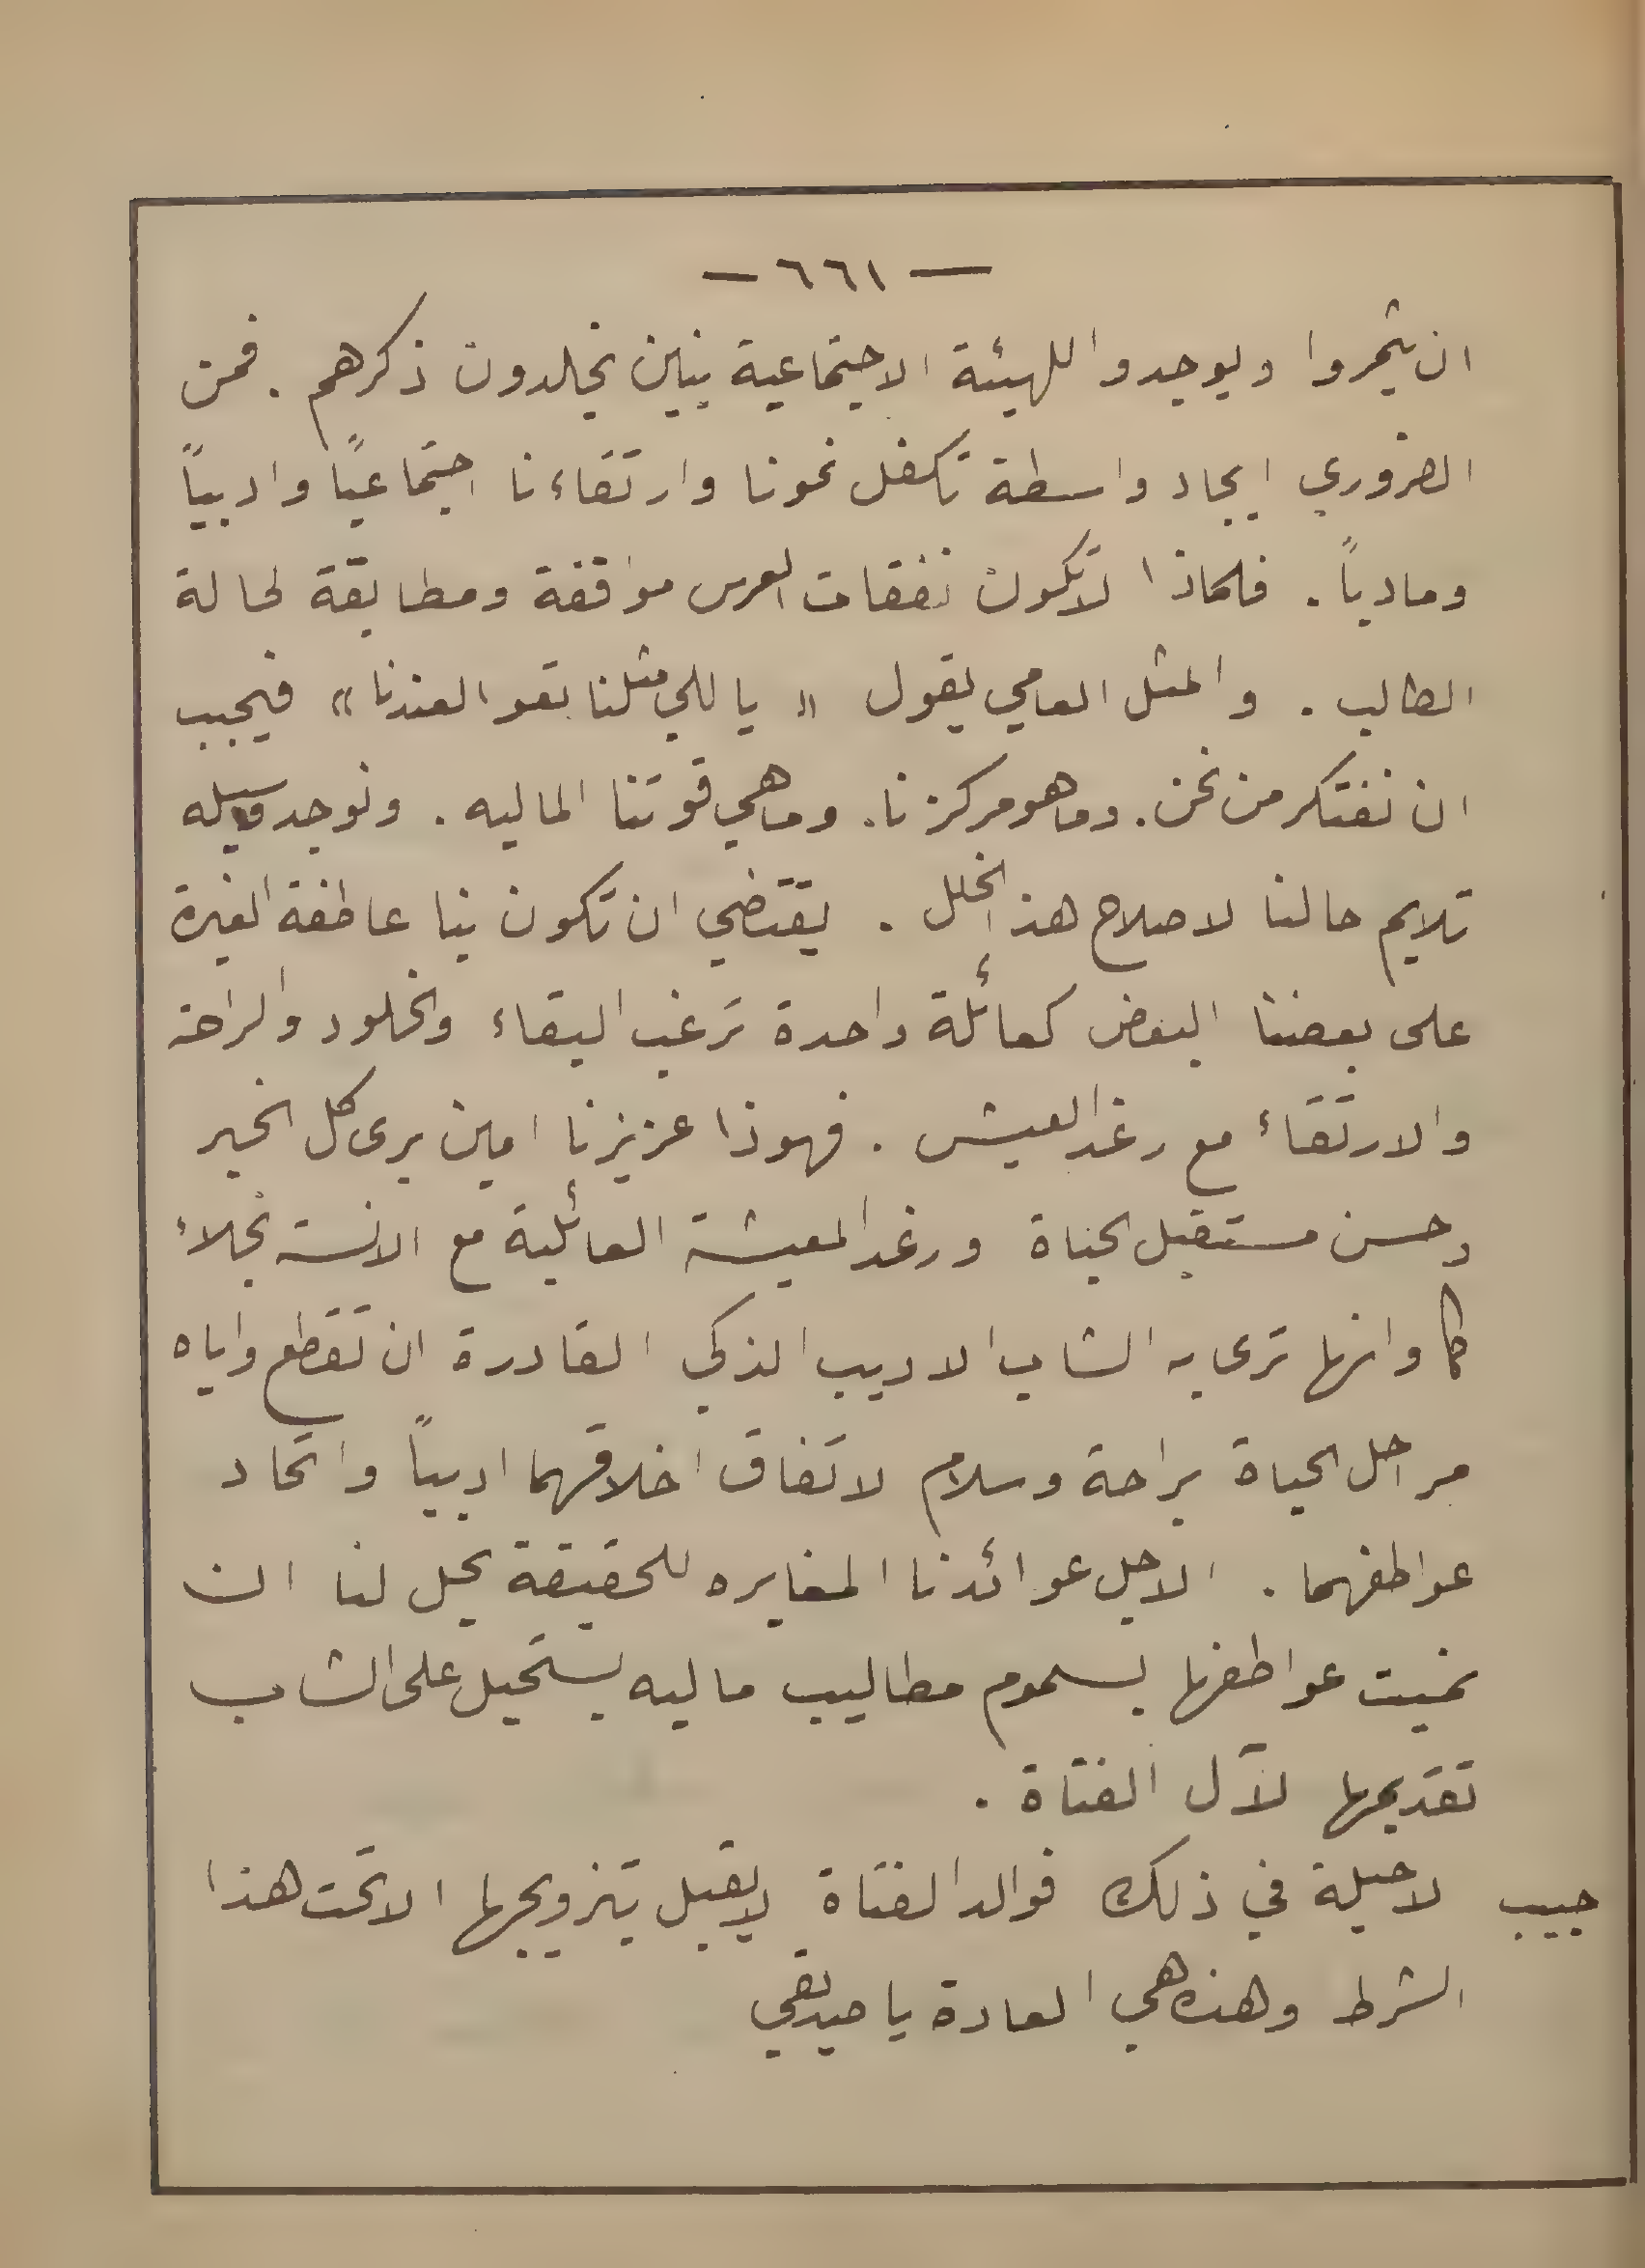 — ٦٦١ —
ان يثمروا ويوجدوا للهيئة الاجتماعية بنين يخلدون ذكرهم . فمن
الضروري ايجاد واسطة تكفل نمونا وارتقاءنا اجتماعياً وادبياً
ومادياً . فلماذا لا تكون نفقات العرس موافقة ومطابقة لحالة
الطالب . والمثل العامي يقول « يا للي مثلنا تعو لعندنا » فيجب
ان نفتكر من نحن . وما هو مركزنا . وما هي قوتنا الماليه . ونوجد وسيله
تلايم حالنا لاصلاح هذا الخلل . يقتضي ان تكون بنا عاطفة الغيرة
على بعضنا البعض كعائلة واحدة ترغب البقاء والخلود والراحة
والارتقاء مع رغد العيش . فهوذا عزيزنا امين يرى كل الخير
وحسن مستقبل الحياة ورغد المعيشة العائلية مع الانسة نجلاء
كما وانها ترى به الشاب الاديب الذكي القادرة ان تقطع واياه
مراحل الحياة براحة وسلام لاتفاق اخلاقهما ادبياً واتحاد
عواطفهما . الاجل عوائدنا المغايره للحقيقة يحل لنا ان
نميت عواطفها بسموم مطاليب ماليه يستحيل على الشاب
تقديمها لآل الفتاة .
حبيب لا حيلة في ذلك فوالد الفتاة لا يقبل بتزويجها الا تحت هذا
الشرط وهذه هي العادة يا صديقي